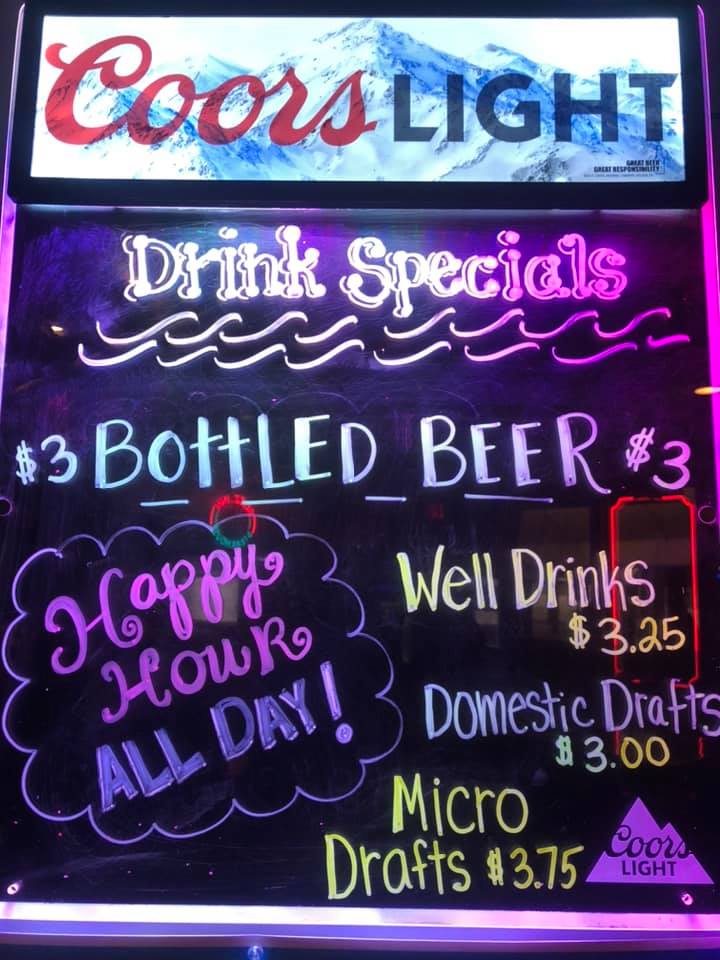 Coors LIGHT
GREAT BEER
GREAT RESPONSIBILITY
Drink Specials
$3 BOTTLED BEER $3
Happy
Hour
ALL DAY!
Well Drinks
$3.25
Domestic Drafts
$3.00
Micro
Drafts $3.75
Coors
LIGHT